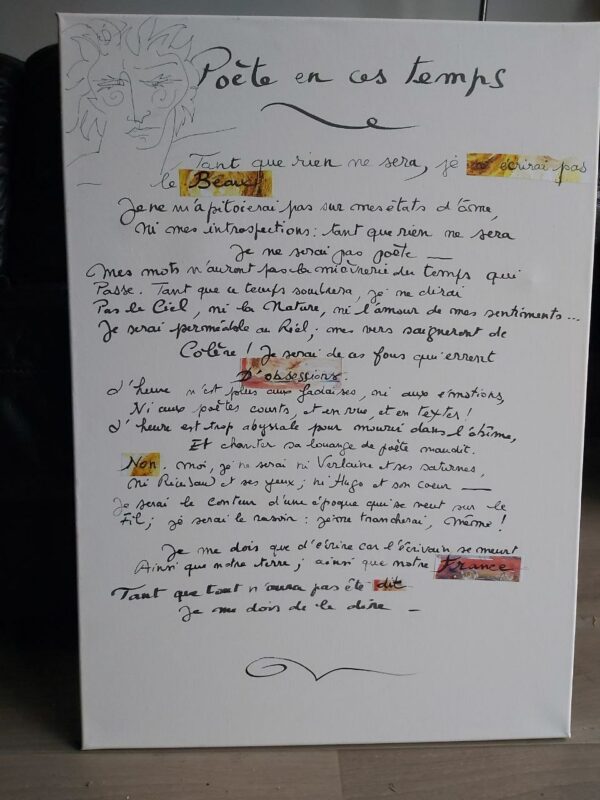 Poète en ces temps
Tant que rien ne sera, je ne écrirai pas
le Beau,
Je ne m'apitoierai pas sur mes états d'âme,
Ni mes introspections : tant que rien ne sera
Je ne serai pas poète —
Mes mots n'auront pas la mièvrerie du temps qui
Passe. Tant que ce temps sombrera, je ne dirai
Pas le Ciel, ni la Nature, ni l'amour de mes sentiments...
Je serai perméable au Réel ; mes vers saigneront de
Colère ! Je serai de ces fous qui errent
D'obsessions.
L'heure n'est plus aux fadaises, ni aux émotions,
Ni aux poètes courts, et en rue, et en textes !
L'heure est trop abyssale pour mourir dans l'abîme,
Et chanter sa louange de poète maudit.
Non, moi, je ne serai ni Verlaine et ses saturnes,
ni Rimbaud et ses yeux ; ni Hugo et son coeur —
Je serai le conteur d'une époque qui se meut sur le
Fil ; je serai le rasoir : je me trancherai, même !
Je me dois que d'écrire car l'écrivain se meurt
Ainsi que notre terre ; ainsi que notre France
Tant que tout n'aura pas été dit
Je me dois de le dire —